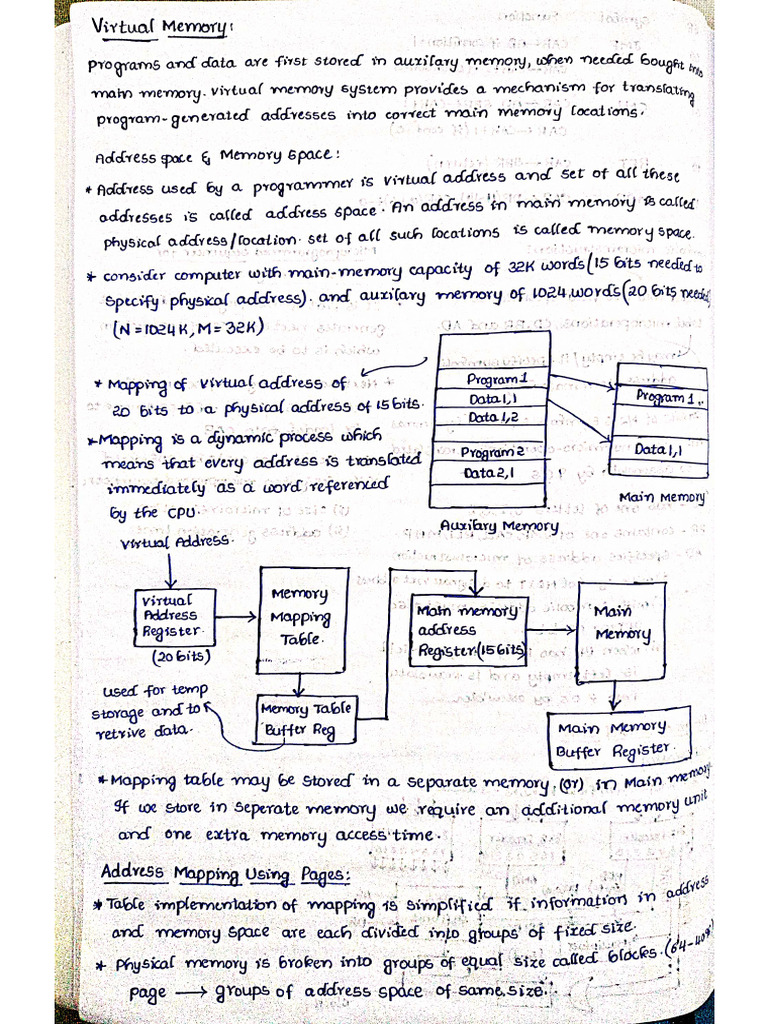 Virtual Memory:
programs and data are first stored in auxilary memory, when needed bought into
main memory. virtual memory system provides a mechanism for translating
program-generated addresses into correct main memory locations.
Address space & Memory space:
* Address used by a programmer is virtual address and set of all these
addresses is called address space. An address in main memory is called
physical address/location. set of all such locations is called memory space.
* consider computer with main-memory capacity of 32K words (15 bits needed to
specify physical address). and auxilary memory of 1024 words (20 bits needed)
(N = 1024K, M = 32K)
* Mapping of virtual address of
20 bits to a physical address of 15 bits.
* Mapping is a dynamic process which
means that every address is translated
immediately as a word referenced
by the CPU.
Program 1
Data 1,1
Data 1,2
Program 2
Data 2,1
Auxilary Memory
Program 1
Data 1,1
Main Memory
Virtual Address.
Virtual
Address
Register.
(20 bits)
Memory
Mapping
Table.
Main memory
address
Register (15 bits)
Main
Memory
used for temp
storage and to
retrive data.
Memory Table
Buffer Reg
Main Memory
Buffer Register.
* Mapping table may be stored in a separate memory (or) in Main memory
If we store in seperate memory we require an additional memory unit
and one extra memory access time.
Address Mapping Using Pages:
* Table implementation of mapping is simplified if information in address
and memory space are each divided into groups of fixed size.
* Physical memory is broken into groups of equal size called blocks. (64-
page → groups of address space of same size.